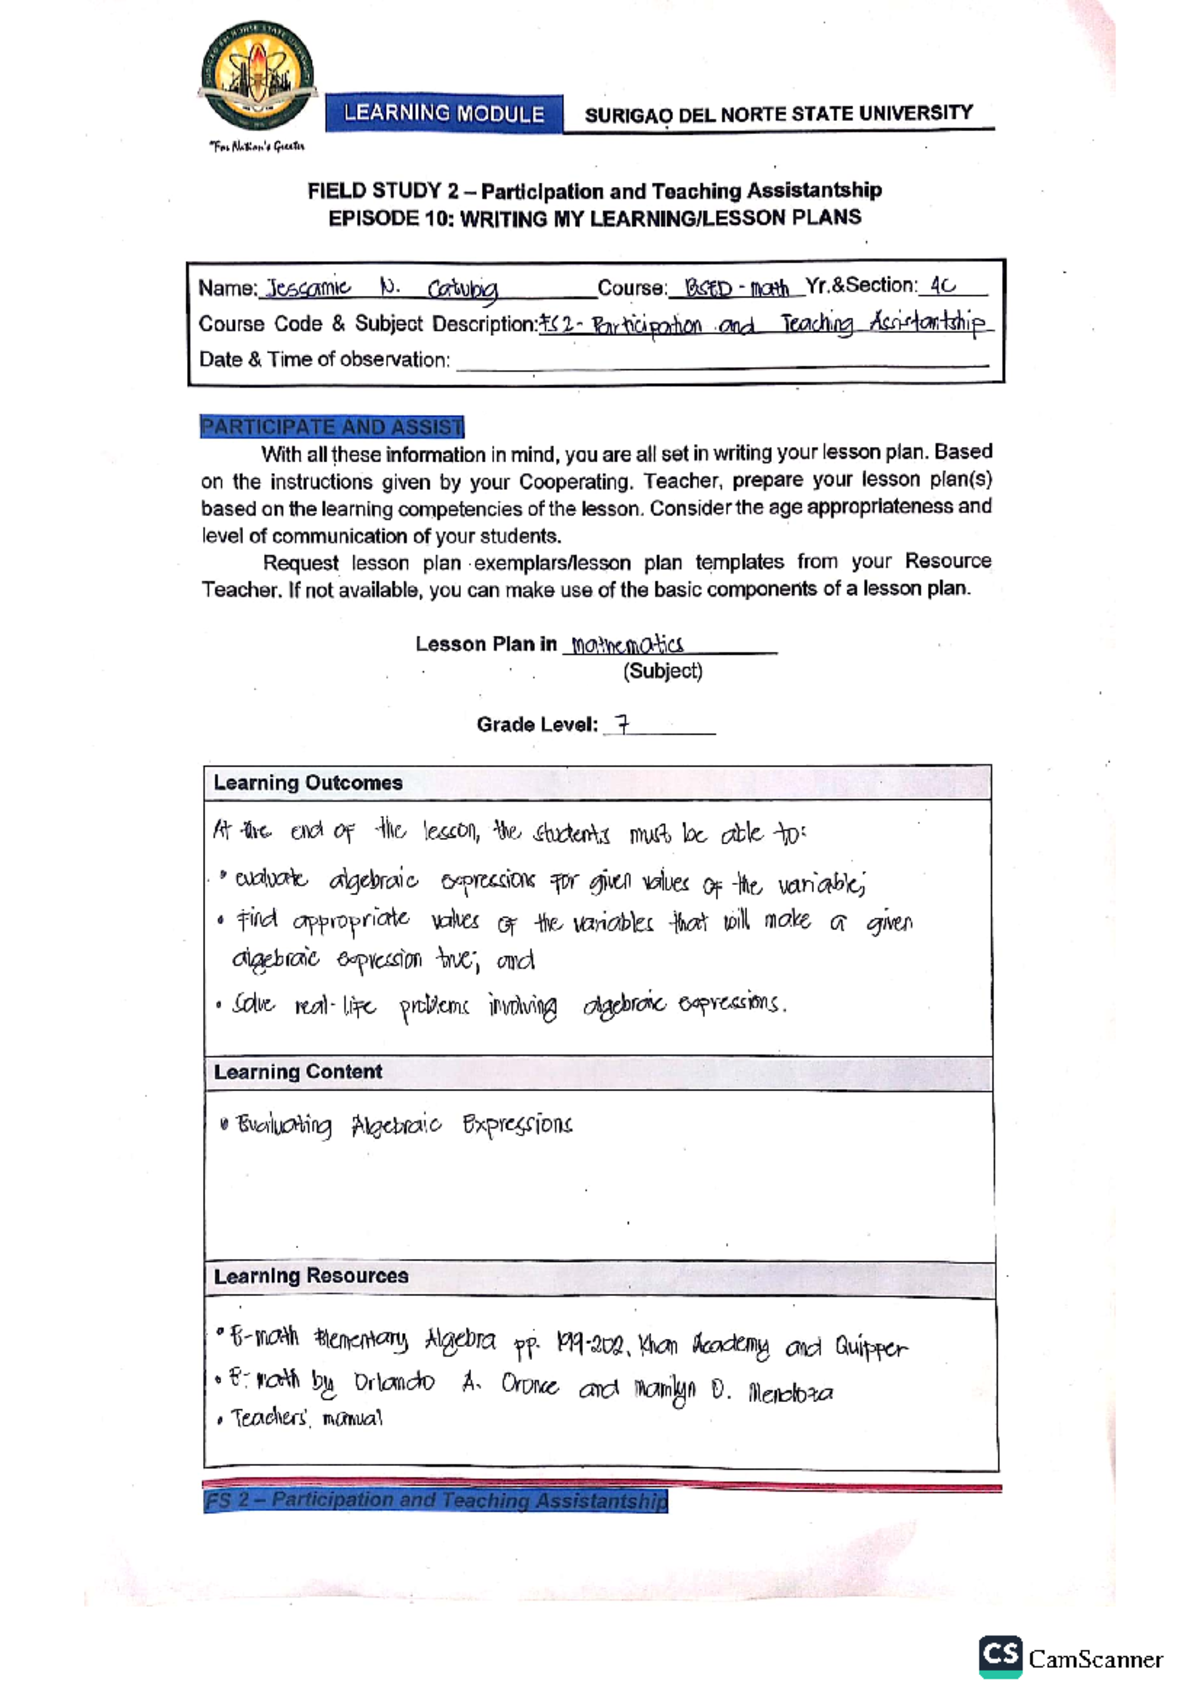 LEARNING MODULE SURIGAO DEL NORTE STATE UNIVERSITY
"For Nation's Greater
FIELD STUDY 2 – Participation and Teaching Assistantship
EPISODE 10: WRITING MY LEARNING/LESSON PLANS
Name: Jescamie N. Catubig Course: BSED - math Yr.&Section: 4C
Course Code & Subject Description: FS 2 - Participation and Teaching Assistantship
Date & Time of observation:
PARTICIPATE AND ASSIST
With all these information in mind, you are all set in writing your lesson plan. Based
on the instructions given by your Cooperating. Teacher, prepare your lesson plan(s)
based on the learning competencies of the lesson. Consider the age appropriateness and
level of communication of your students.
Request lesson plan exemplars/lesson plan templates from your Resource
Teacher. If not available, you can make use of the basic components of a lesson plan.
Lesson Plan in Mathematics
(Subject)
Grade Level: 7
Learning Outcomes
At the end of the lesson, the students must be able to:
• evaluate algebraic expressions for given values of the variable;
• Find appropriate values of the variables that will make a given
algebraic expression true; and
• Solve real-life problems involving algebraic expressions.
Learning Content
• Evaluating Algebraic Expressions
Learning Resources
• E-math Elementary Algebra pp. 199-202, Khan Academy and Quipper
• E-math by Orlando A. Oronce and Marilyn O. Mendoza
• Teachers' manual
FS 2 – Participation and Teaching Assistantship
CS CamScanner